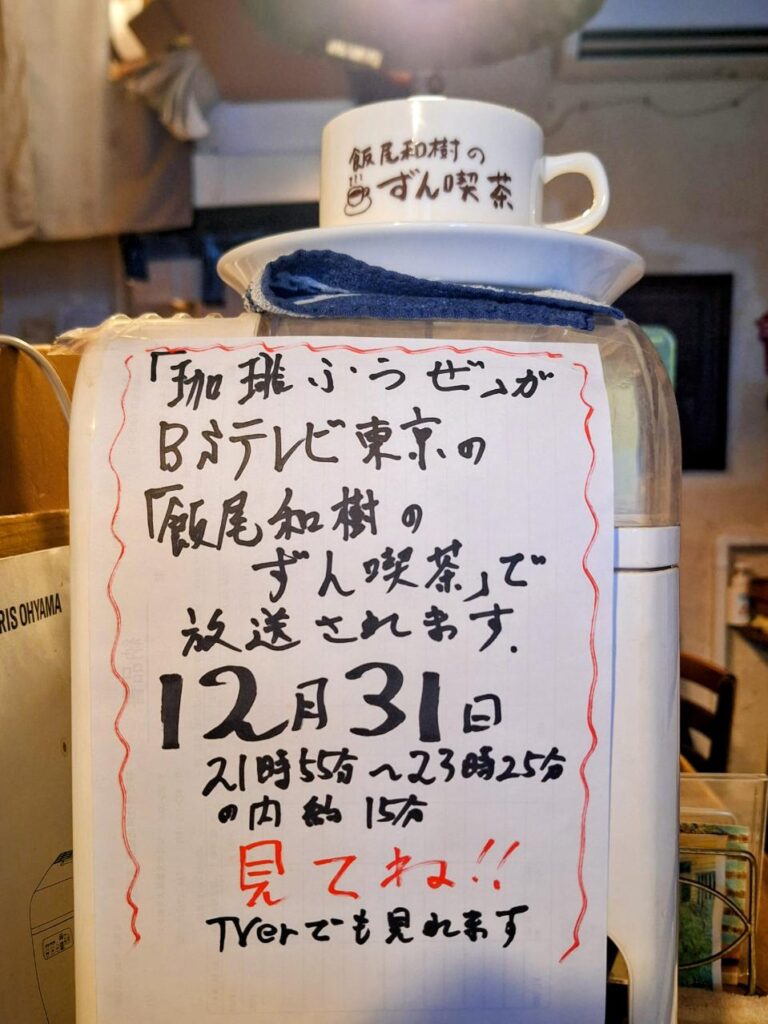 飯尾和樹の
ずん喫茶
「珈琲ふうぜ」が
BSテレビ東京の
「飯尾和樹の
ずん喫茶」で
放送されます.
12月31日
21時55分〜23時25分
の内 約 15分
見てね!!
TVerでも見れます
RIS OHYAMA